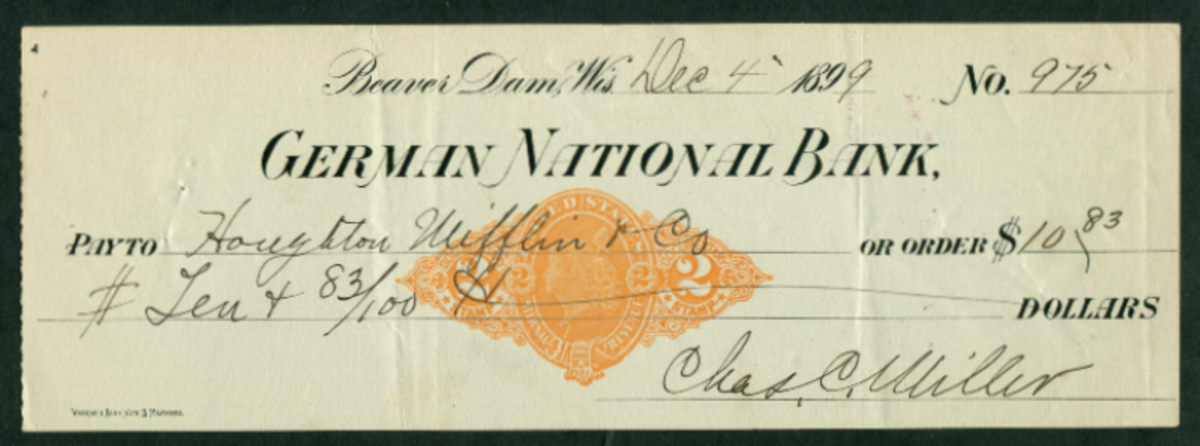 Beaver Dam, Wis. Dec 4 1899 No. 975
GERMAN NATIONAL BANK,
PAY TO Houghton Mifflin & Co OR ORDER $10 83
$ Ten & 83/100 DOLLARS
UNITED STATES
2 2
Chas. C. Miller